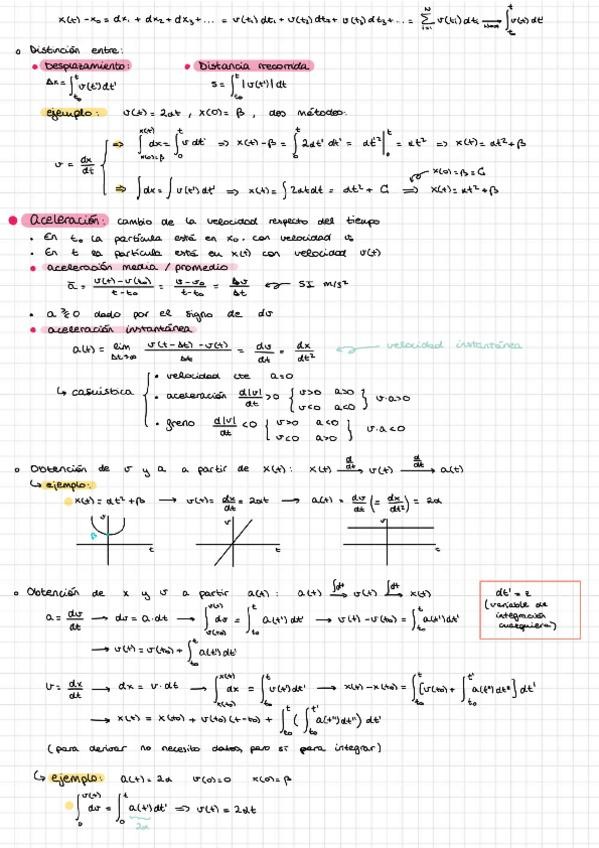 x(t) - x₀ = dx₁ + dx₂ + dx₃ + ... = v(t₁)dt₁ + v(t₂)dt₂ + v(t₃)dt₃ + ... = Σᵢ₌₁ᴺ v(tᵢ)dtᵢ ⟶ ∫_{t₀}^{t} v(t)dt
○ Distinción entre:
• Desplazamiento: • Distancia recorrida
Δx = ∫_{t₀}^{t} v(t')dt' s = ∫_{t₀}^{t} |v(t')|dt
ejemplo: v(t) = 2αt, x(0) = β, dos métodos:
v = dx/dt { ⇒ ∫_{x(0)=β}^{x(t)} dx = ∫_{0}^{t} v dt' ⇒ x(t) - β = ∫_{0}^{t} 2αt' dt' = αt'²|_{0}^{t} = αt² ⇒ x(t) = αt² + β
x(0) = β = C
⇒ ∫dx = ∫v(t')dt' ⇒ x(t) = ∫2αt dt = αt² + C ⇒ x(t) = αt² + β
• Aceleración: cambio de la velocidad respecto del tiempo
• En t₀ la partícula está en x₀ con velocidad v₀
• En t la partícula está en x(t) con velocidad v(t)
• aceleración media / promedio
ā = (v(t) - v(t₀))/(t - t₀) = (v - v₀)/(t - t₀) = Δv/Δt ← SI m/s²
• a ≷ 0 dado por el signo de dv
• aceleración instantánea
a(t) = lim_{Δt→0} (v(t-Δt) - v(t))/Δt = dv/dt = dx/dt² ← velocidad instantánea
↳ casuística { • velocidad cte a=0
• aceleración d|v|/dt > 0 { v>0 a>0 / v<0 a<0 } v·a>0
• freno d|v|/dt < 0 { v>0 a<0 / v<0 a>0 } v·a<0
○ Obtención de v y a a partir de x(t): x(t) —d/dt→ v(t) —d/dt→ a(t)
↳ ejemplo:
• x(t) = αt² + β ⟶ v(t) = dx/dt = 2αt ⟶ a(t) = dv/dt (= dx/dt²) = 2α
v v v
β
t t t
○ Obtención de x y v a partir a(t): a(t) —∫dt→ v(t) —∫dt→ x(t)
dt' = z
(variable de
integración
cualquiera)
a = dv/dt ⟶ dv = a·dt ⟶ ∫_{v(t₀)}^{v(t)} dv = ∫_{t₀}^{t} a(t')dt' ⟶ v(t) - v(t₀) = ∫_{t₀}^{t} a(t')dt'
⟶ v(t) = v(t₀) + ∫_{t₀}^{t} a(t')dt'
v = dx/dt ⟶ dx = v·dt ⟶ ∫_{x(t₀)}^{x(t)} dx = ∫_{t₀}^{t} v(t')dt' ⟶ x(t) - x(t₀) = ∫_{t₀}^{t} [v(t₀) + ∫_{t₀}^{t'} a(t'')dt''] dt'
⟶ x(t) = x(t₀) + v(t₀)(t-t₀) + ∫_{t₀}^{t} (∫_{t₀}^{t'} a(t'')dt'') dt'
(para derivar no necesito datos, pero sí para integrar)
↳ ejemplo: a(t) = 2α v(0) = 0 x(0) = β
• ∫_{0}^{v(t)} dv = ∫_{0}^{t} a(t')dt' ⇒ v(t) = 2αt
2α